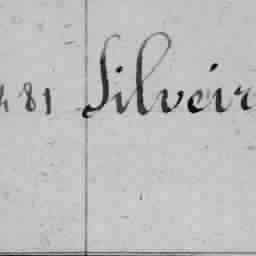 481 Silveir